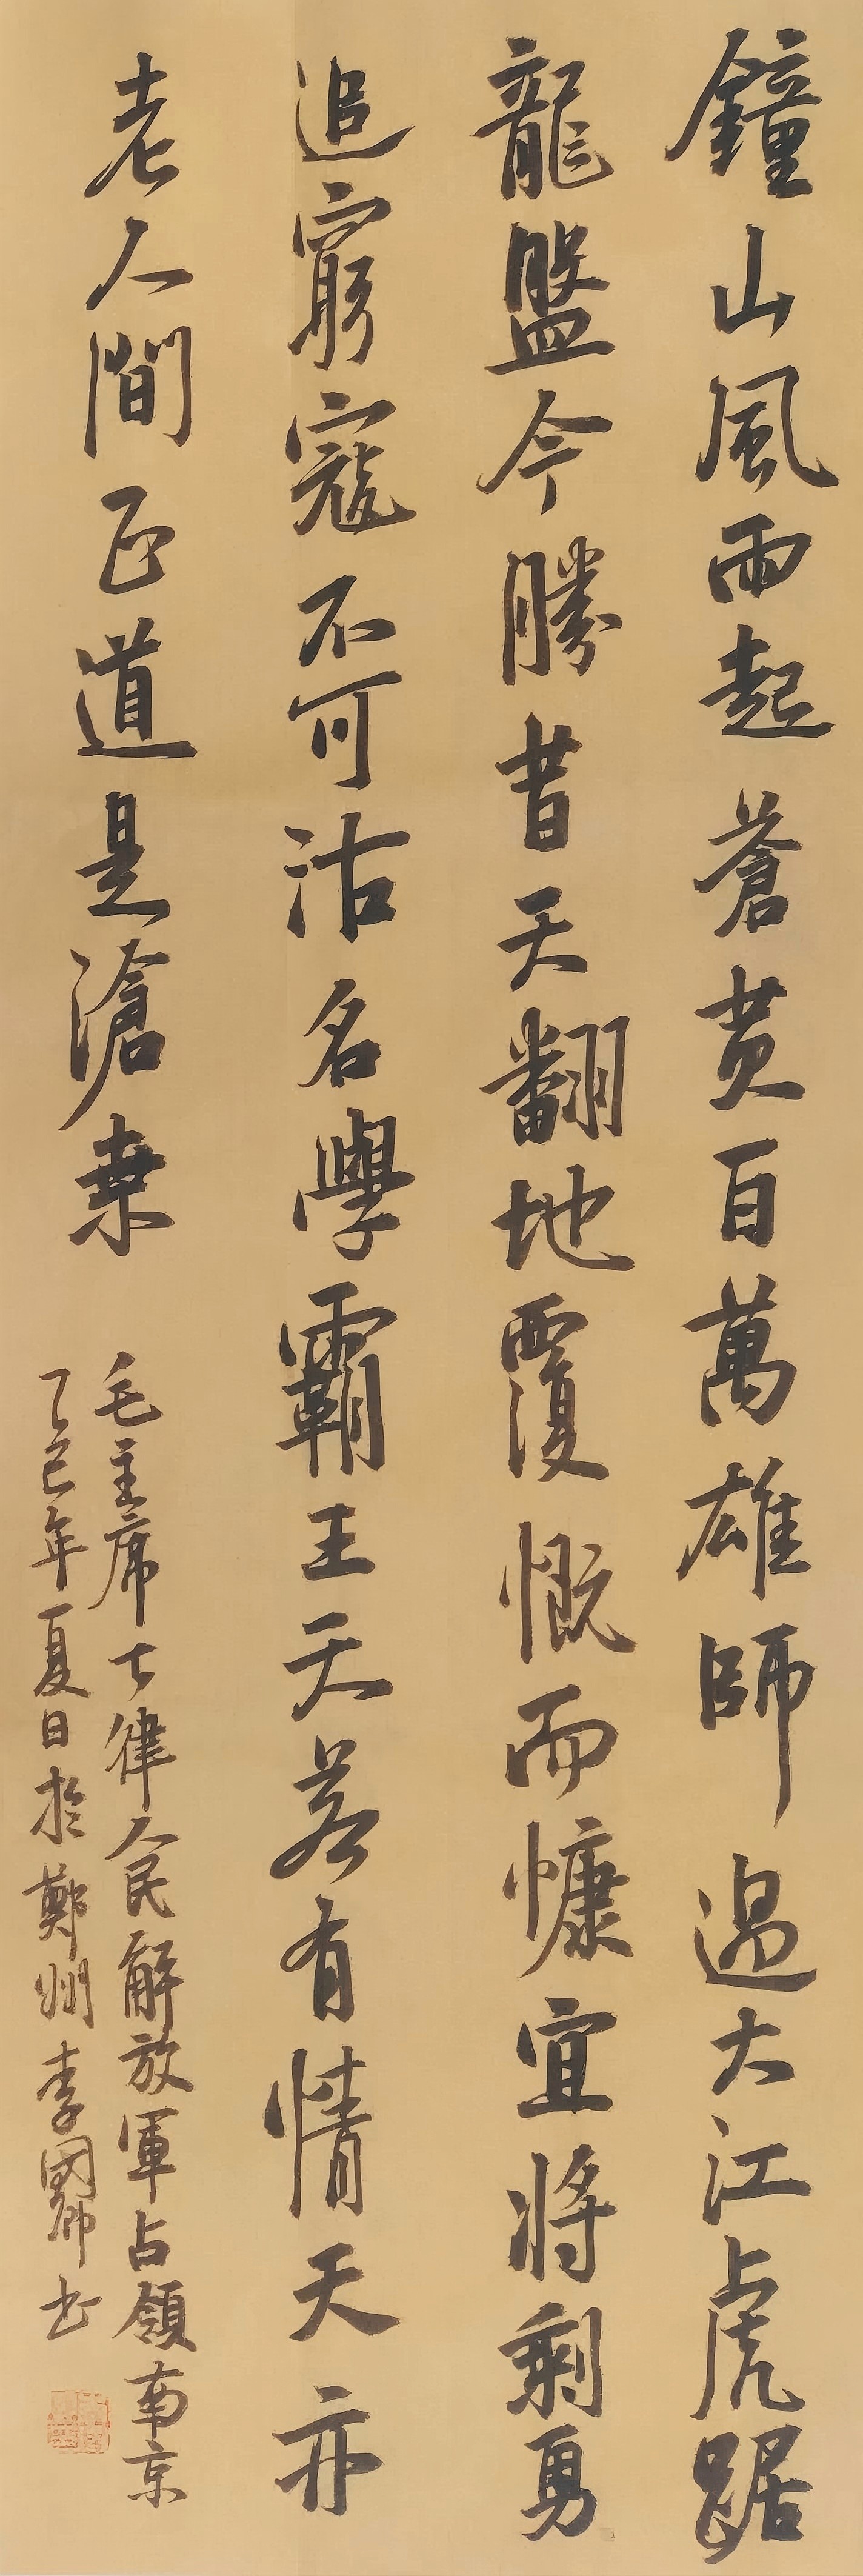 鐘山風雨起蒼黄百萬雄師過大江虎踞
龍盤今勝昔天翻地覆慨而慷宜将剩勇
追窮寇不可沽名學霸王天若有情天亦
老人間正道是滄桑
毛主席七律人民解放軍占領南京
乙巳年夏日於鄭州李國卿书